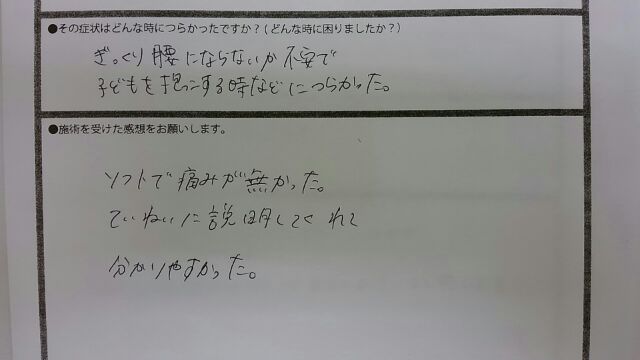 ●その症状はどんな時につらかったですか？(どんな時に困りましたか？)
ぎっくり腰にならないか不安で
子どもを抱っこする時などにつらかった。
●施術を受けた感想をお願いします。
ソフトで痛みが無かった。
ていねいに説明してくれて
分かりやすかった。